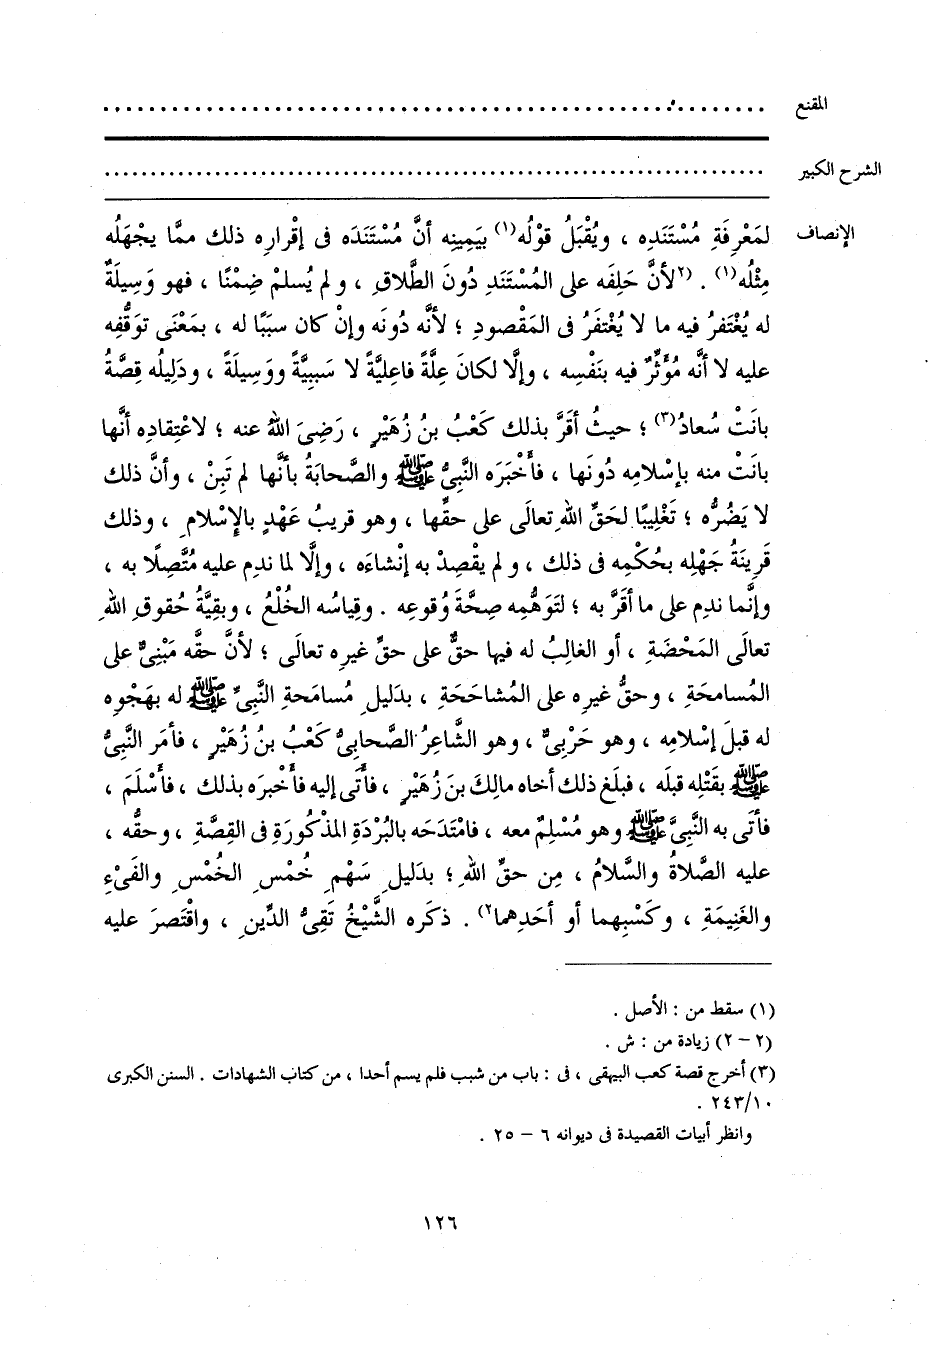 المقنع ................................................................
الشرح الكبير ................................................................
الإنصاف لمَعْرِفَةِ مُسْتَنَدِه ، ويُقْبَلُ قوْلُه(١) بيَمِينِه أنَّ مُسْتَنَدَه فى إقْرارِه ذلك ممَّا يجْهَلُه
مِثْلُه(١) . (٢لأنَّ حَلِفَه على المُسْتَنَدِ دُونَ الطَّلاقِ ، ولم يُسلمْ ضِمْنًا ، فهو وَسِيلَةٌ
له يُغْتَفرُ فيه ما لا يُغْتفَرُ فى المَقْصودِ ؛ لأنَّه دُونَه وإنْ كان سبَبًا له ، بمَعْنَى توَقُّفِه
عليه لا أنَّه مُؤَثِّرٌ فيه بنَفْسِه ، وإلَّا لكانَ عِلَّةً فاعِليَّةً لا سَببِيَّةً ووَسِيلَةً ، ودَلِيلُه قِصَّةُ
بانَتْ سُعادُ(٣) ؛ حيثُ أقَرَّ بذلك كَعْبُ بنُ زُهَيْرٍ ، رَضِىَ اللهُ عنه ؛ لاعْتِقادِه أنَّها
بانَتْ منه بإسْلامِه دُونَها ، فأَخْبَرَه النَّبِىُّ ﷺ والصَّحابَةُ بأنَّها لم تَبِنْ ، وأنَّ ذلك
لا يَضُرُّه ؛ تَغْلِيبًا لحَقِّ اللهِ تعالَى على حقِّها ، وهو قريبُ عَهْدٍ بالإِسْلامِ ، وذلك
قَرِينَةُ جَهْلِه بحُكْمِه فى ذلك ، ولم يقْصِدْ به إنْشاءَه ، وإلَّا لما ندِم عليه مُتَّصِلًا به ،
وإنَّما ندِم على ما أقَرَّ به ؛ لتَوَهُّمِه صِحَّةَ وُقوعِه . وقِياسُه الخُلْعُ ، وبقِيَّةُ حُقوقِ اللهِ
تعالَى المَحْضَةِ ، أو الغالِبُ له فيها حقٌّ على حقِّ غيرِه تعالَى ؛ لأنَّ حقَّه مَبْنِىٌّ على
المُسامحَةِ ، وحقُّ غيرِه على المُشاحَحَةِ ، بدَليلِ مُسامَحةِ النَّبِىِّ ﷺ له بهَجْوِه
له قبلَ إسْلامِه ، وهو حَرْبِىٌّ ، وهو الشَّاعِرُ الصَّحابِىُّ كَعْبُ بنُ زُهَيْرٍ ، فأمَر النَّبِىُّ
ﷺ بقَتْلِه قبلَه ، فبلَغ ذلك أخاه مالِكَ بنَ زُهَيْرٍ ، فأَتَى إليه فأَخْبرَه بذلك ، فأَسْلَمَ ،
فأَتَى به النَّبِىَّ ﷺ وهو مُسْلِمٌ معه ، فامْتدَحَه بالبُرْدَةِ المذْكورَةِ فى القِصَّةِ ، وحقُّه ،
عليه الصَّلاةُ والسَّلامُ ، مِن حقِّ اللهِ ؛ بدَليلِ سَهْمِ خُمْسِ الخُمْسِ والفَىْءِ
والغَنِيمَةِ ، وكَسْبِهما أو أحَدِهما٢) . ذكَره الشَّيْخُ تَقِىُّ الدِّينِ ، واقْتصَرَ عليه
(١) سقط من : الأصل .
(٢ – ٢) زيادة من : ش .
(٣) أخرج قصة كعب البيهقى ، فى : باب من شبب فلم يسم أحدا ، من كتاب الشهادات . السنن الكبرى
١٠/٢٤٣ .
وانظر أبيات القصيدة فى ديوانه ٦ – ٢٥ .
١٢٦